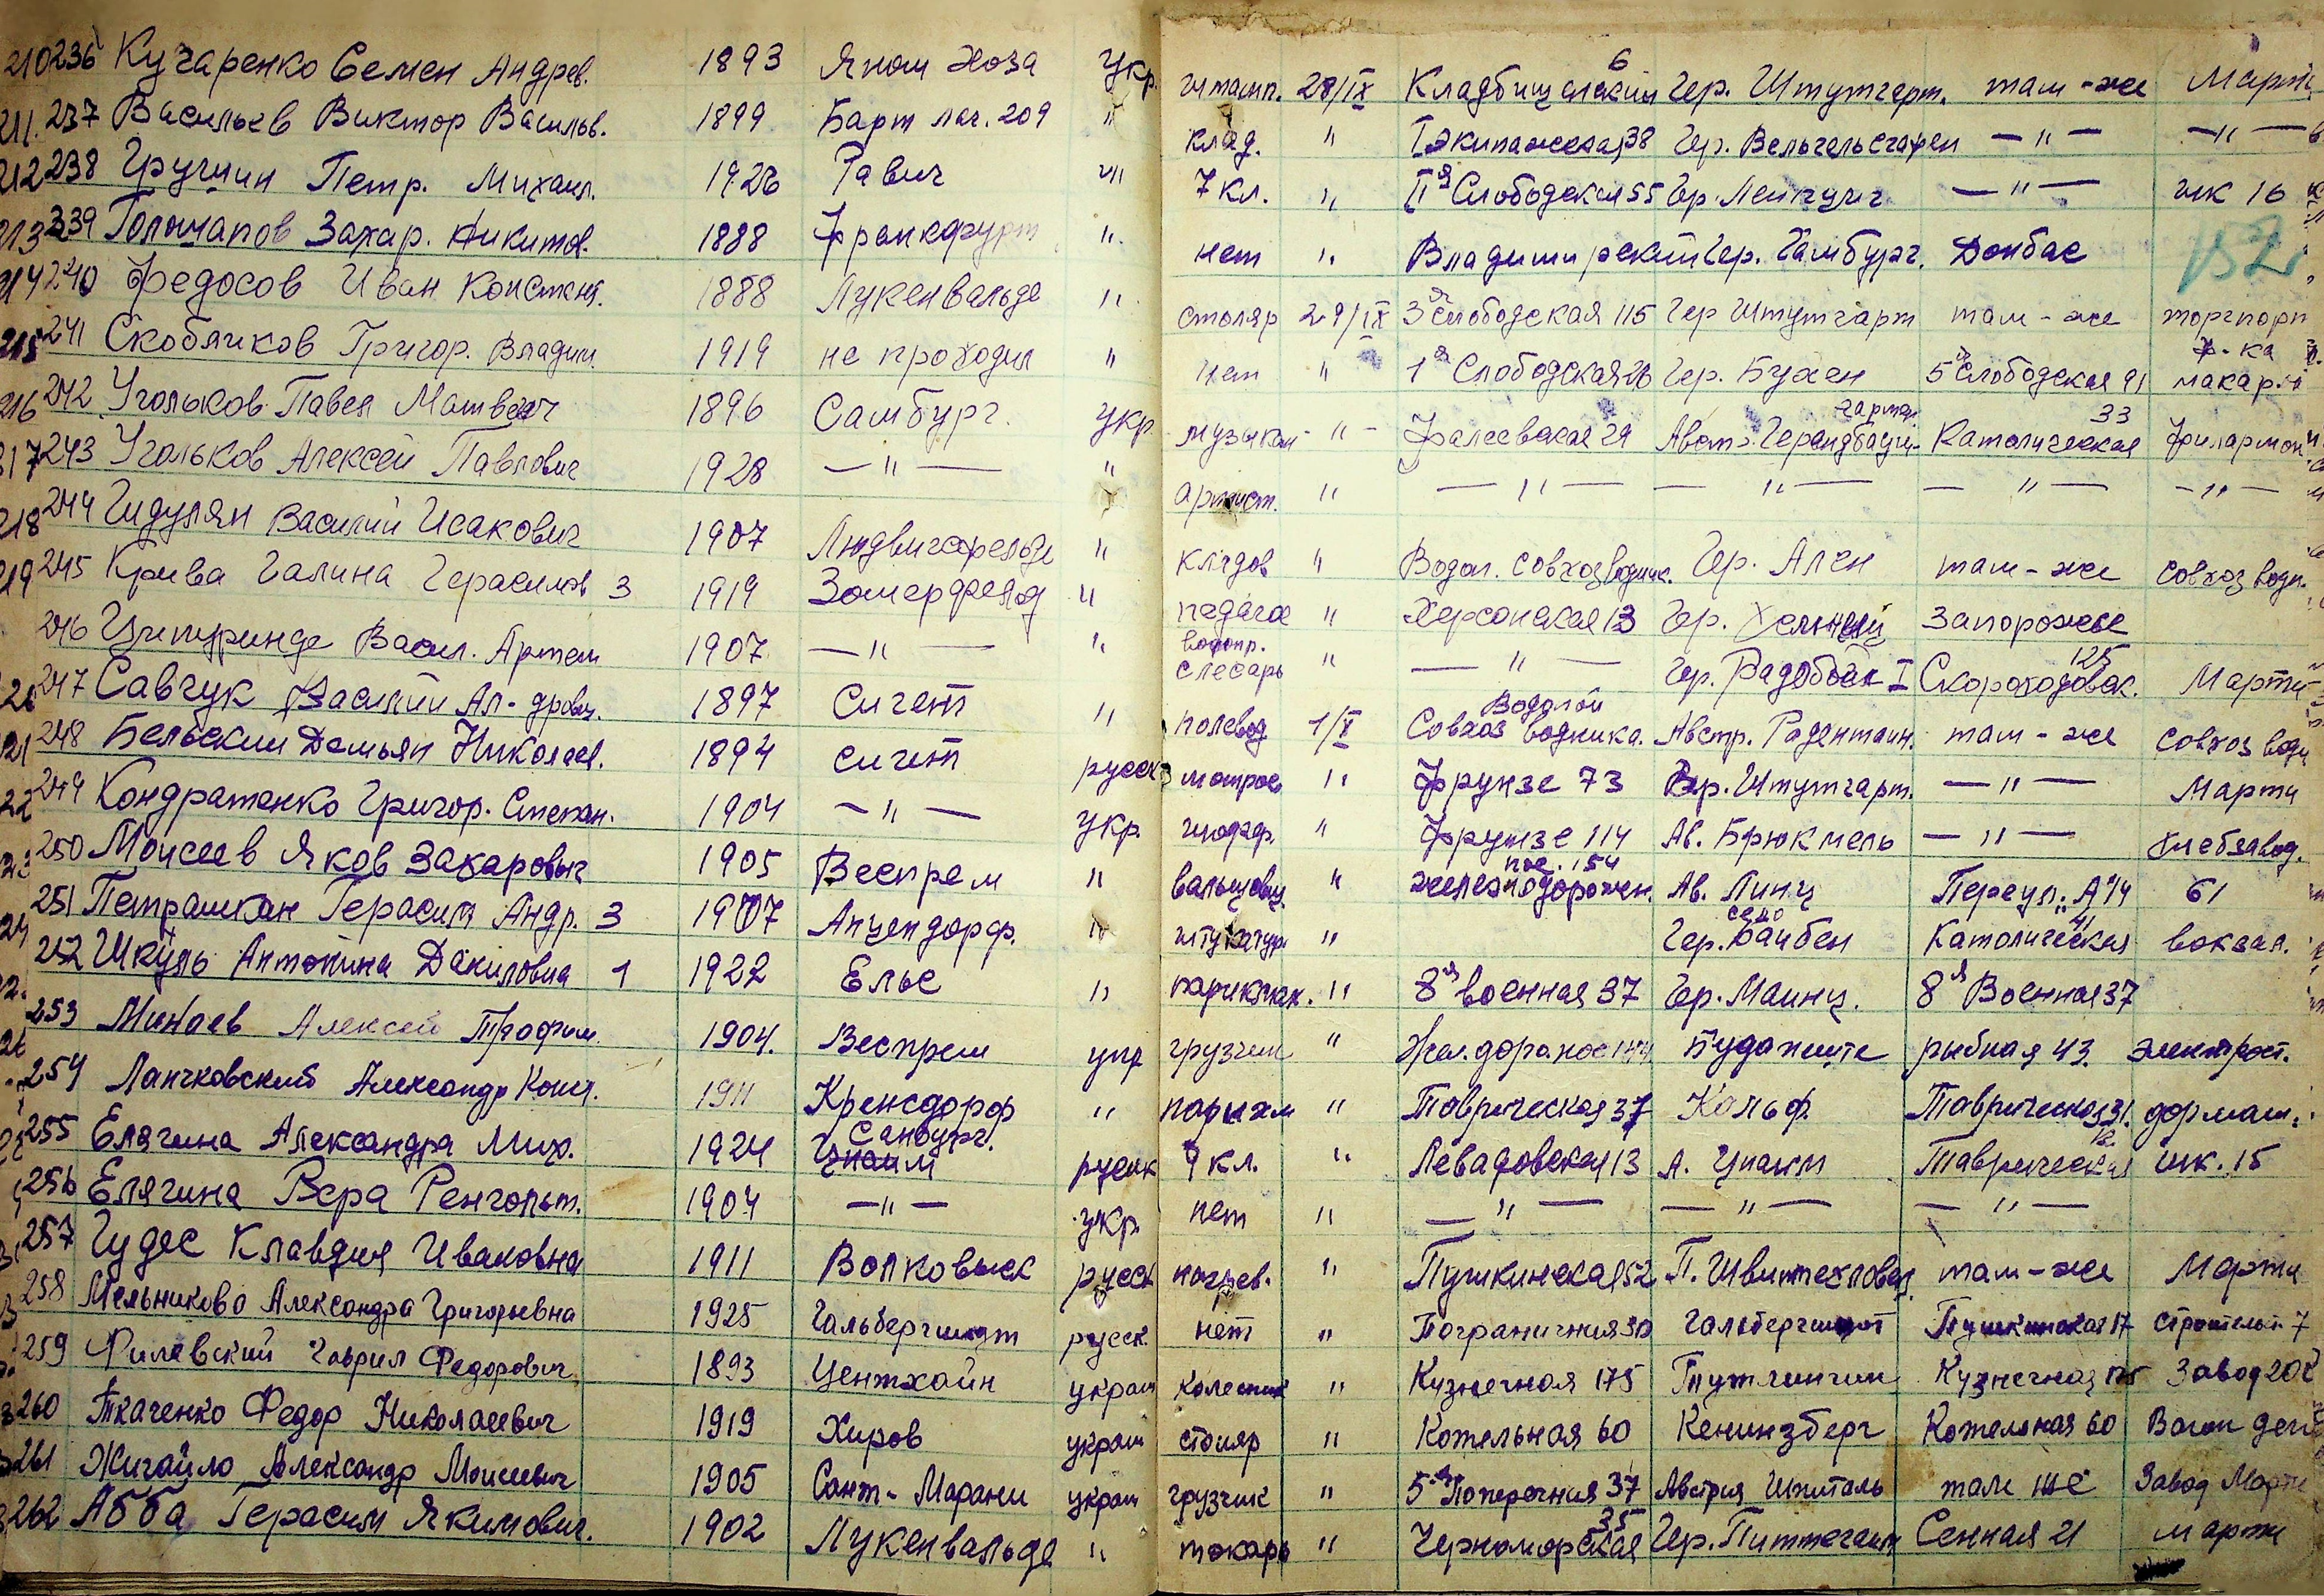 210 236 Кучаренко Семен Андрев. 1893 Яном Хоза Укр. штамп. 28/IX Кладбищенский 6 Гер. Штутгарт. там-же Марти
211. 237 Васильев Виктор Васильв. 1899 Барт лаг. 209 " клад. " I Экипажеская 38 Гер. — " — — " —
212 238 Грушин Петр. Михаил. 1926 Равич " 7 кл. " IIя Слободская 55 Гер. Лейпциг — " — шк 16
213 239 Захар. Никитов. 1888 Франкфурт " нет " Владимирский Гер. Гамбург. Донбас 152
214 240 Федосов Иван Констант. 1888 Лукенвальде " столяр 29/IX 3я Слободская 115 Гер Штутгарт там-же торгпорт
215 241 Скобячков Григор. Владим. 1919 не проходил " нет " 1я Слободская 26 Гер. Бухен 5я Слободская 91 ф-ка макарон
216 242 Угольков Павел Матвеич 1896 Самбург. укр. музыкан - " - Фалеевская 29 Авст. Католическая 33 Филармон
217 243 Угольков Алексей Павлович 1928 — " — " артист. " — " — — " — — " — — " —
218 244 Гидулян Василий Исакович 1907 Людвигсфельде " кладов " Водоп. совхоз водник. Гер. Ален там-же совхоз водн.
219 245 Крива Галина Герасимов 3 1919 Зомерфельд " педагог " Херсонская 13 Гер. Запорожье
246 Васил. Артем 1907 — " — " водопр. слесарь " — " — Гер. I Скороходовск. 125 Марти
247 Савчук Василий Ал-дрович. 1897 Сигет " полевод 1/X Водопой Совхоз водника. Австр. там-же совхоз водн
248 Бельский Демьян Николаев. 1894 сигет русск матрос " Фрунзе 73 Гер. Штутгарт. — " — Марти
249 Кондратенко Григор. Степан. 1904 — " — укр. шофер. " Фрунзе 114 Ав. — " — хлебзавод.
250 Моисеев Яков Захарович 1905 Веспрем " вальцовщ. " железнодорожн. пос. 154 Ав. Линц Переул. 61
251 Петрашкан Герасим Андр. 3 1907 Апцендорф. " штукатур " Гер. село Байбен Католическая 41 вокзал.
252 Шкуль Антонина Даниловна 1 1922 Ельс " парикмах. " 8я военная 37 Гер. Маинц. 8я Военная 37
253 Минаев Алексей Трофим. 1904. Веспрем укр грузчик " Жел. дорож. пос 144 Будапеште рыбная 43 электрост.
254 Ланчковский Александр Конст. 1911 Кренсдорф " парихм " Таврическая 37 Кальф. Таврическая 31.
255 Елягина Александра Мих. 1924 Санбург. Цнаим русск 9 кл. " Левадовская 13 А. Цнаим Таврическая шк. 15
256 Елягина Вера Ренгольт. 1904 — " — укр. нет " — " — — " — — " —
257 Чудес Клавдия Ивановна 1911 Волковыск русск " Пушкинская 52 П. там-же Марти
258 Мельникова Александра Григорьевна 1925 Гальберштат русск. нет " Пограничная 30 Гальберштат Пушкинская 17 7
259 Филевский Гаврил Федорович 1893 Центхайн украи " Кузнечная 175 Тутлинген Кузнечная 175 Завод 202
260 Ткаченко Федор Николаевич 1919 Хиров украи столяр " Котельная 60 Кенинзберг Котельная 60 Вагон депо
261 Жигайло Александр Моисеевич 1905 Сант-Марани украи грузчик " 5я Поперечная 37 Австрия Шпиталь там же Завод Марти
262 Абба Герасим Якимович. 1902 Лукенвальде " токарь " Черноморская 35 Гер. Сенная 21 марти